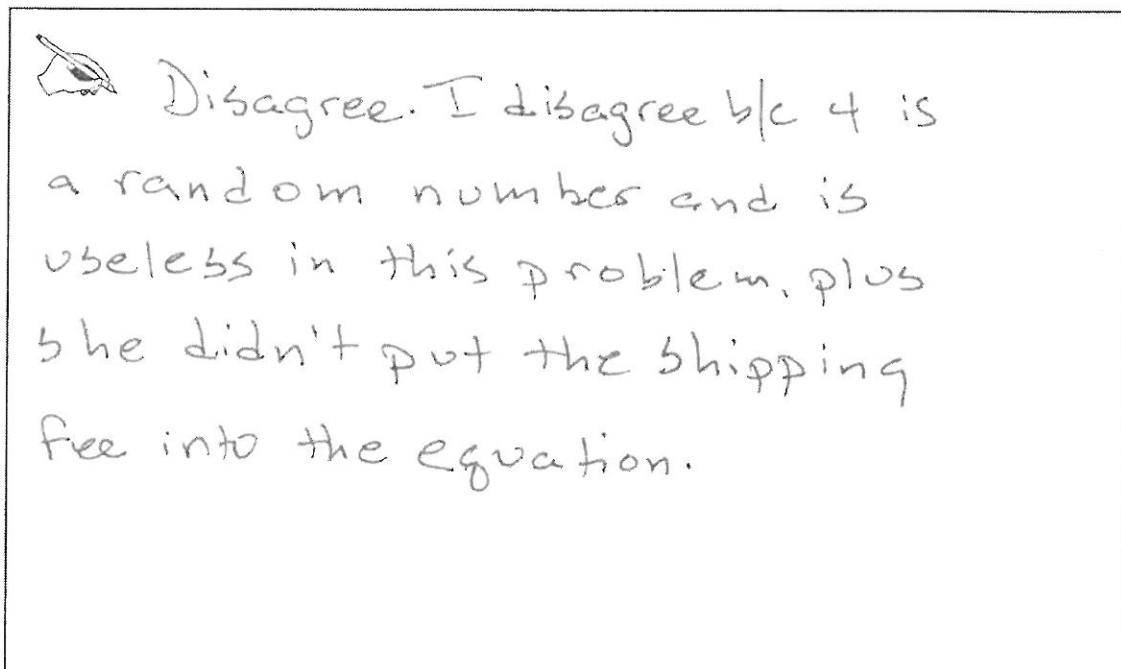 Disagree. I disagree b/c 4 is
a random number and is
useless in this problem, plus
she didn't put the shipping
fee into the equation.